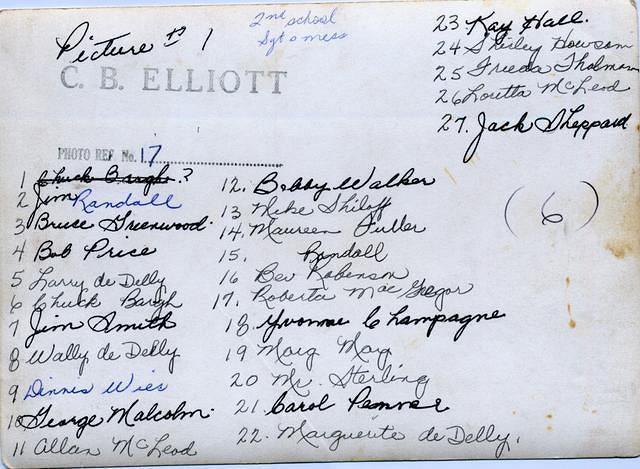 Picture # 1
2nd school
Sgt o mess
C. B. ELLIOTT
PHOTO REF. No. 17
1 Chuck Bargh ?
2 Jim Randall
3 Bruce Greenwood.
4 Bob Price
5 Larry de Delly
6 Chuck Bargh
7 Jim Smith
8 Wally de Delly
9 Dinnis Wies
10 George Malcolm.
11 Allan McLeod
12. Bobby Walker
13 Mike Shiloff
14. Maureen Fuller
15. Randall
16 Bev Robenson
17. Roberta Mac Gregor
18. Yvonne Champagne
19 Marg May
20 Mr. Sterling
21. Carol Penner
22. Marguerite de Delly.
23 Kay Hall.
24 Shirley Howsom
25 Freeda Tholman
26 Loretta McLeod
27. Jack Sheppard
(6)